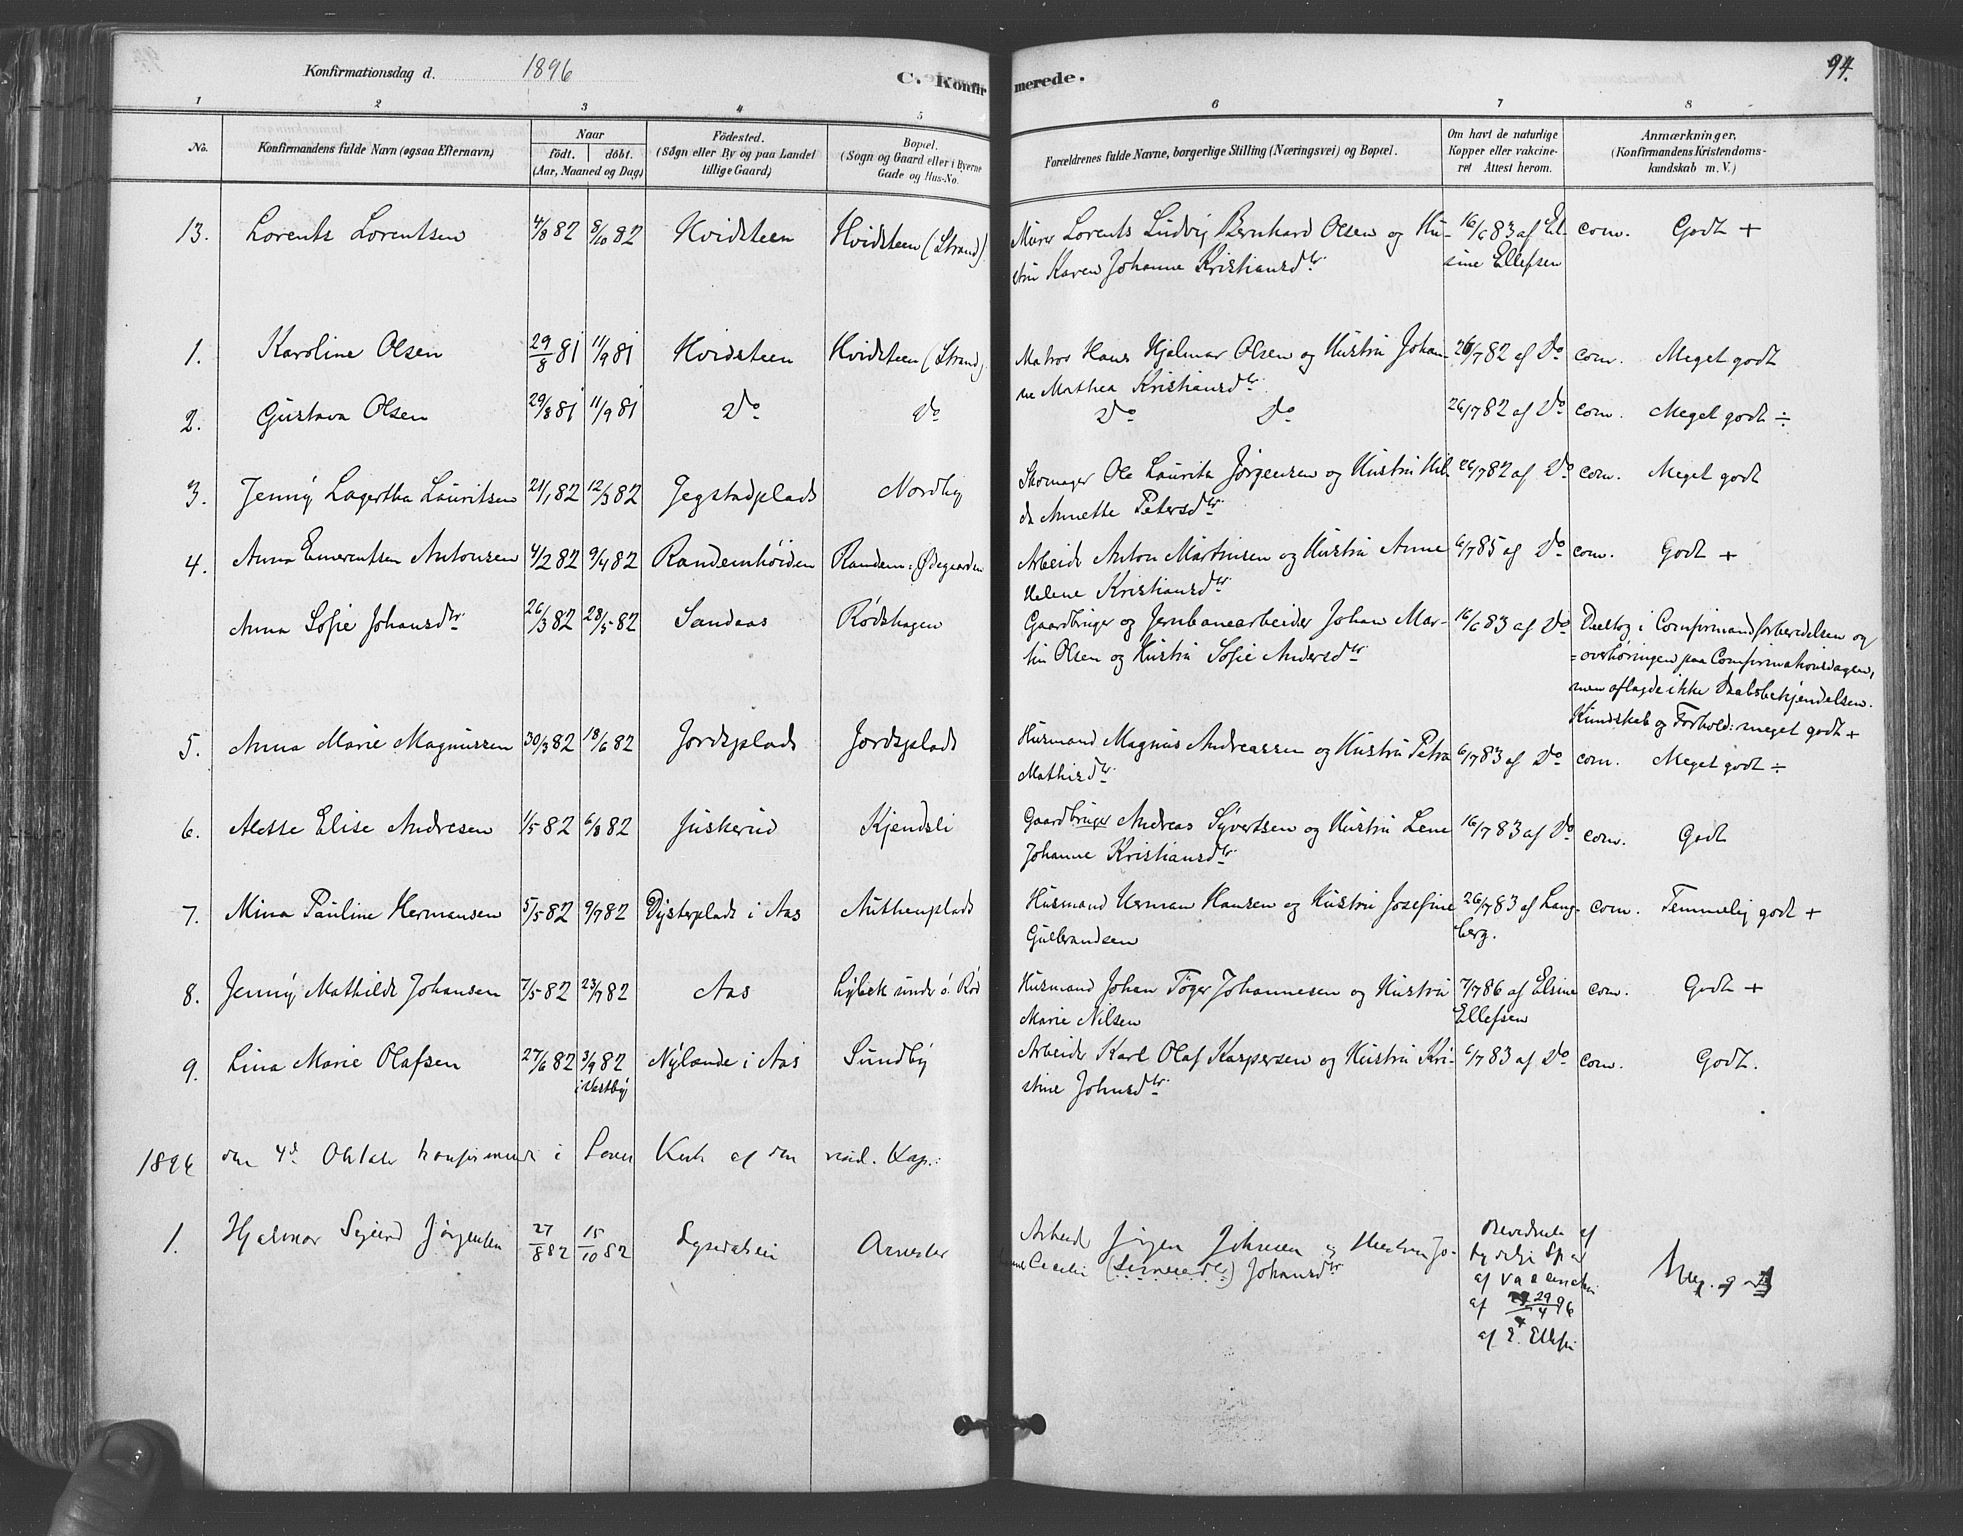 Konfirmationsdag d. 1896
C. Konfirmerede.
94.
1 2 3 4 5 6 7 8
No.
Konfirmandens fulde Navn (ogsaa Efternavn)
Naar
födt. döbt.
(Aar, Maaned og Dag)
Födested.
(Sogn eller By og paa Landet
tillige Gaard)
Bopæl.
(Sogn og Gaard eller i Byerne
Gade og Hus-No.
Forældrenes fulde Navne, borgerlige Stilling (Næringsvei) og Bopæl.
Om havt de naturlige
Kopper eller vakcine-
ret Attest herom.
Anmærkninger.
(Konfirmandens Kristendoms-
kundskab m. V.)
13. Lorents Lorentsen 4/8 82 8/10 82 Hvidsteen Hvidsteen (Strand). Murer Lorents Ludvig Bernhard Olsen og Hu- 16/6 83 af El- com. Godt +
stru Karen Johanne Kristiansdtr. sine Ellefsen
1. Karoline Olsen 29/8 81 11/9 81 Hvidsteen Hvidsteen (Strand). Matros Hans Hjalmar Olsen og Hustru Johan- 26/7 82 af Do com. Meget godt
ne Mathea Kristiansdtr.
2. Gustava Olsen 29/8 81 11/9 81 Do Do Do Do 26/7 82 af Do com. Meget godt ÷
3. Jenny Lagertha Lauritsen 21/1 82 12/3 82 Jegstadplads Nordby Skomager Ole Laurits Jørgensen og Hustru Hil- 26/7 82 af Do com. Meget godt
da Annette Petersdtr.
4. Anna Emerentsen Antonsen 4/2 82 9/4 82 Randemhöiden Randem: Ødegaarden Arbeider Anton Martinsen og Hustru Anne 6/7 85 af Do com. Godt +
Helene Kristiansdtr.
Anna Sofie Johansdtr. 26/3 82 28/5 82 Sandaas Rødshagen Gaardbruger og Jernbanearbeider Johan Mar- 16/6 83 af Do Deeltog i Comfirmandforberedelsen og
tin Olsen og Hustru Sofie Andersdtr. =overhøringen paa Comfirmationsdagen,
men aflagde ikke Daabsbekjendelsen.
Kundskab og Forhold: meget godt +
5. Anna Marie Magnussen 30/3 82 18/6 82 Jordsplads Jordsplads Husmand Magnus Andreassen og Hustru Petra 6/7 83 af Do com. Meget godt ÷
Mathisdtr.
6. Alette Elise Andresen 1/5 82 6/8 82 Juskerud Kjendsli Gaardbruger Andreas Syvertsen og Hustru Lene 16/7 83 af Do com. Godt
Johanne Kristiansdtr.
7. Mina Pauline Hermansen 5/5 82 9/7 82 Dysterplads i Aas Authenplads Husmand Herman Hansen og Hustru Josefine 26/7 83 af Lang- com. Temmelig godt +
Gulbrandsen berg.
8. Jenny Mathilde Johansen 7/5 82 23/7 82 Aas Lybek under ö. Rød Husmand Johan Töger Johannesen og Hustru 7/7 86 af Elsine com. Godt +
Marie Nilsen Ellefsen
9. Lina Marie Olafsen 27/6 82 3/9 82 Nylænde i Aas Sundby Arbeider Karl Olaf Kaspersen og Hustru Kri- 6/7 83 af Do com. Godt.
i Vestby stine Johnsdtr.
1896 den 4de Oktober konfirmeret i Kirke af den resid. Kap.:
1. Hjalmar Sigurd Jørgensen 27/8 82 15/10 82 Arbeid. Jørgen Johnsen og Hustru Jo-
Cecilie Johansdtr.
af 29/4 96
af E. Ellefsen
Meg. godt